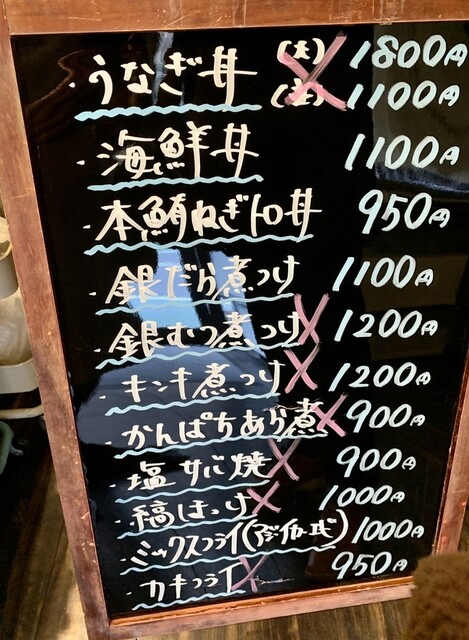 ・うなぎ丼 (大) 1800円
(並) 1100円
・海鮮丼 1100円
・本鮪ねぎトロ丼 950円
・銀だら煮つけ 1100円
・銀むつ煮つけ 1200円
・キンキ煮つけ 1200円
・かんぱちあら煮 900円
・塩サバ焼 900円
・縞ほっけ 1000円
・ミックスフライ(アジ・イカ・エビ) 1000円
・カキフライ 950円